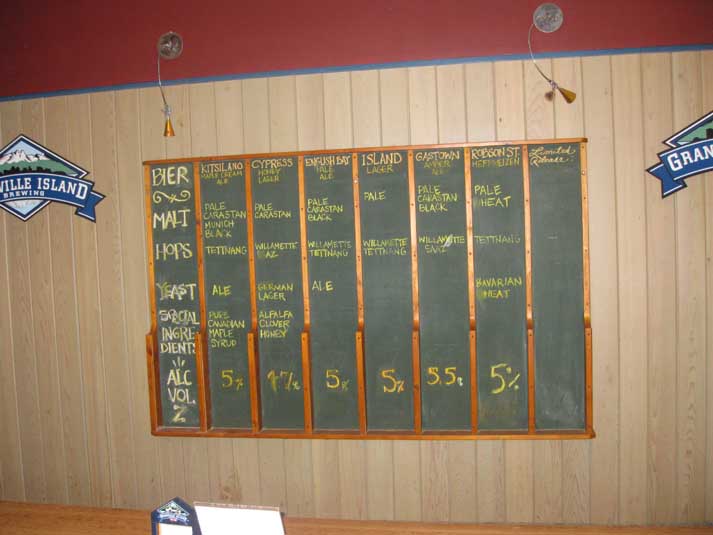 VILLE ISLAND
BREWING
GRAN
BIER
MALT
HOPS
YEAST
SPECIAL
INGRE
DIENTS
ALC
VOL
%
KITSILANO
MAPLE CREAM
ALE
PALE
CARASTAN
MUNICH
BLACK
TETTNANG
ALE
PURE
CANADIAN
MAPLE
SYRUP
5%
CYPRESS
HONEY
LAGER
PALE
CARASTAN
WILLAMETTE
SAAZ
GERMAN
LAGER
ALFALFA
CLOVER
HONEY
4.7%
ENGLISH BAY
PALE
ALE
PALE
CARASTAN
BLACK
WILLAMETTE
TETTNANG
ALE
5%
ISLAND
LAGER
PALE
WILLAMETTE
TETTNANG
5%
GASTOWN
AMBER
ALE
PALE
CARASTAN
BLACK
WILLAMETTE
SAAZ
5.5%
ROBSON ST
HEFEWEIZEN
PALE
WHEAT
TETTNANG
BAVARIAN
WHEAT
5%
Limited
Release: